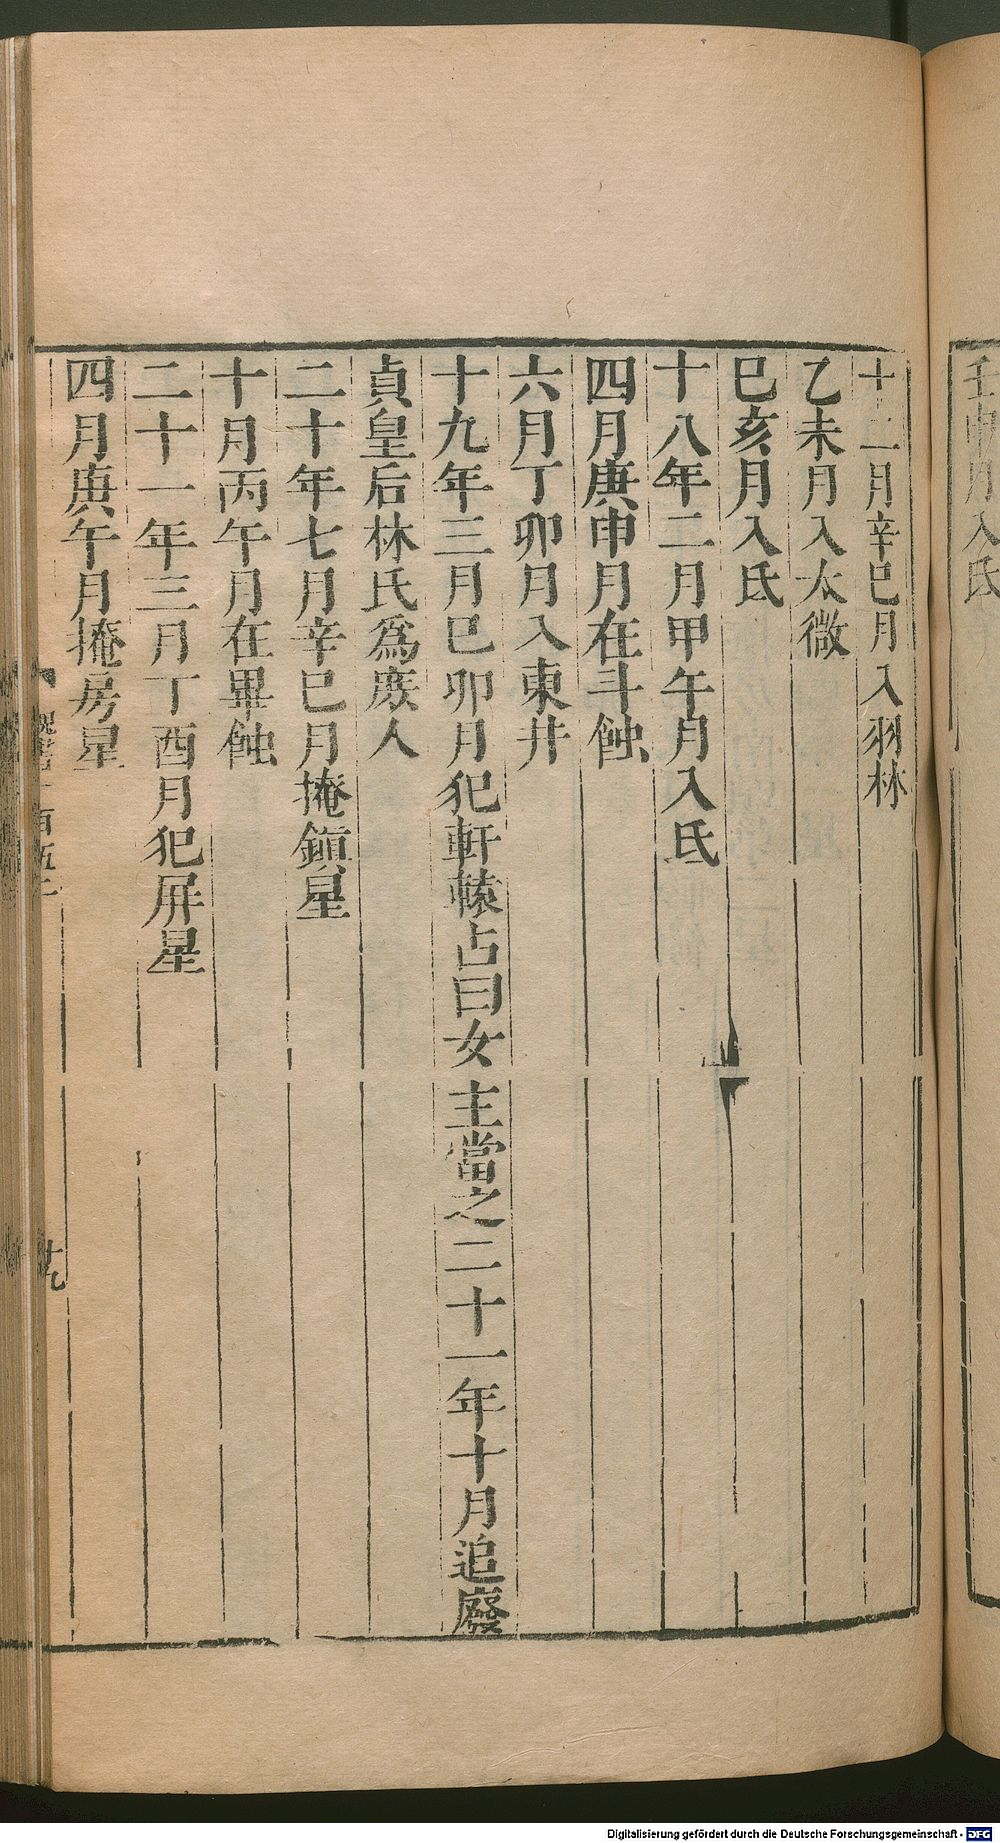 壬申月入氐
十二月辛巳月入羽林
乙未月入太微
巳亥月入氐
十八年二月甲午月入氐
四月庚申月在斗蝕
六月丁卯月入東井
十九年三月巳卯月犯軒轅占曰女主當之二十一年十月追廢
貞皇后林氏爲庶人
二十年七月辛巳月掩鎭星
十月丙午月在畢蝕
二十一年三月丁酉月犯屏星
四月庚午月掩房星
魏書一百五之
十九
Digitalisierung gefördert durch die Deutsche Forschungsgemeinschaft - DFG